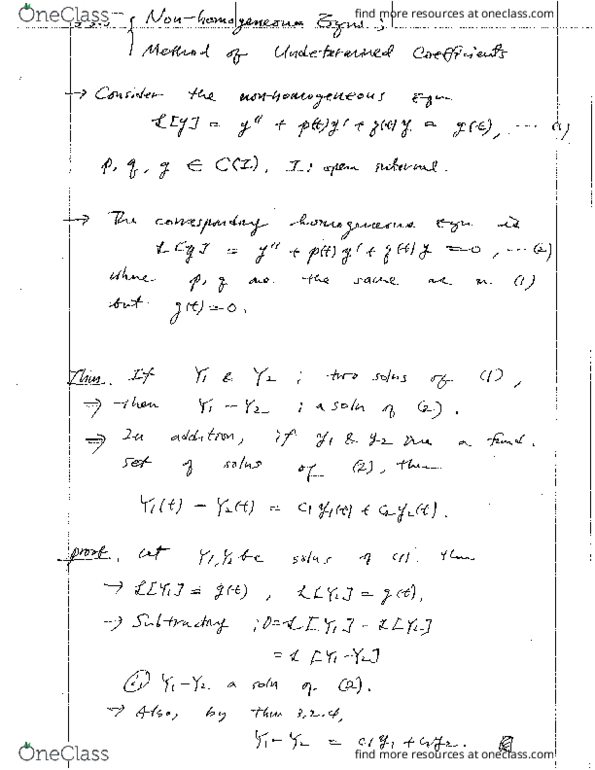 OneClass
find more resources at oneclass.com
Non-homogeneous Eqns ;
Method of Undetermined Coefficients
→ Consider the nonhomogeneous Eqn
L[y] = y'' + p(t)y' + q(t)y = g(t), ... (1)
p, q, g ∈ C(I), I: open interval.
→ The corresponding homogeneous Eqn is
L[y] = y'' + p(t)y' + q(t)y = 0, ... (2)
where p, q are the same as in (1)
but g(t) = 0.
Thm. If Y1 & Y2 ; two solns of (1),
→ then Y1 - Y2 ; a soln of (2).
⇒ In addition, if y1 & y2 are a fund.
set of solns of (2), then
Y1(t) - Y2(t) = c1 y1(t) + c2 y2(t).
proof. Let Y1, Y2 be solns of (1). Then
→ L[Y1] = g(t), L[Y2] = g(t),
→ Subtracting ; 0 = L[Y1] - L[Y2]
= L[Y1-Y2]
∴ Y1-Y2 a soln of (2).
→ Also, by thm 3.2.4,
Y1 - Y2 = c1y1 + c2y2.
OneClass
find more resources at oneclass.com